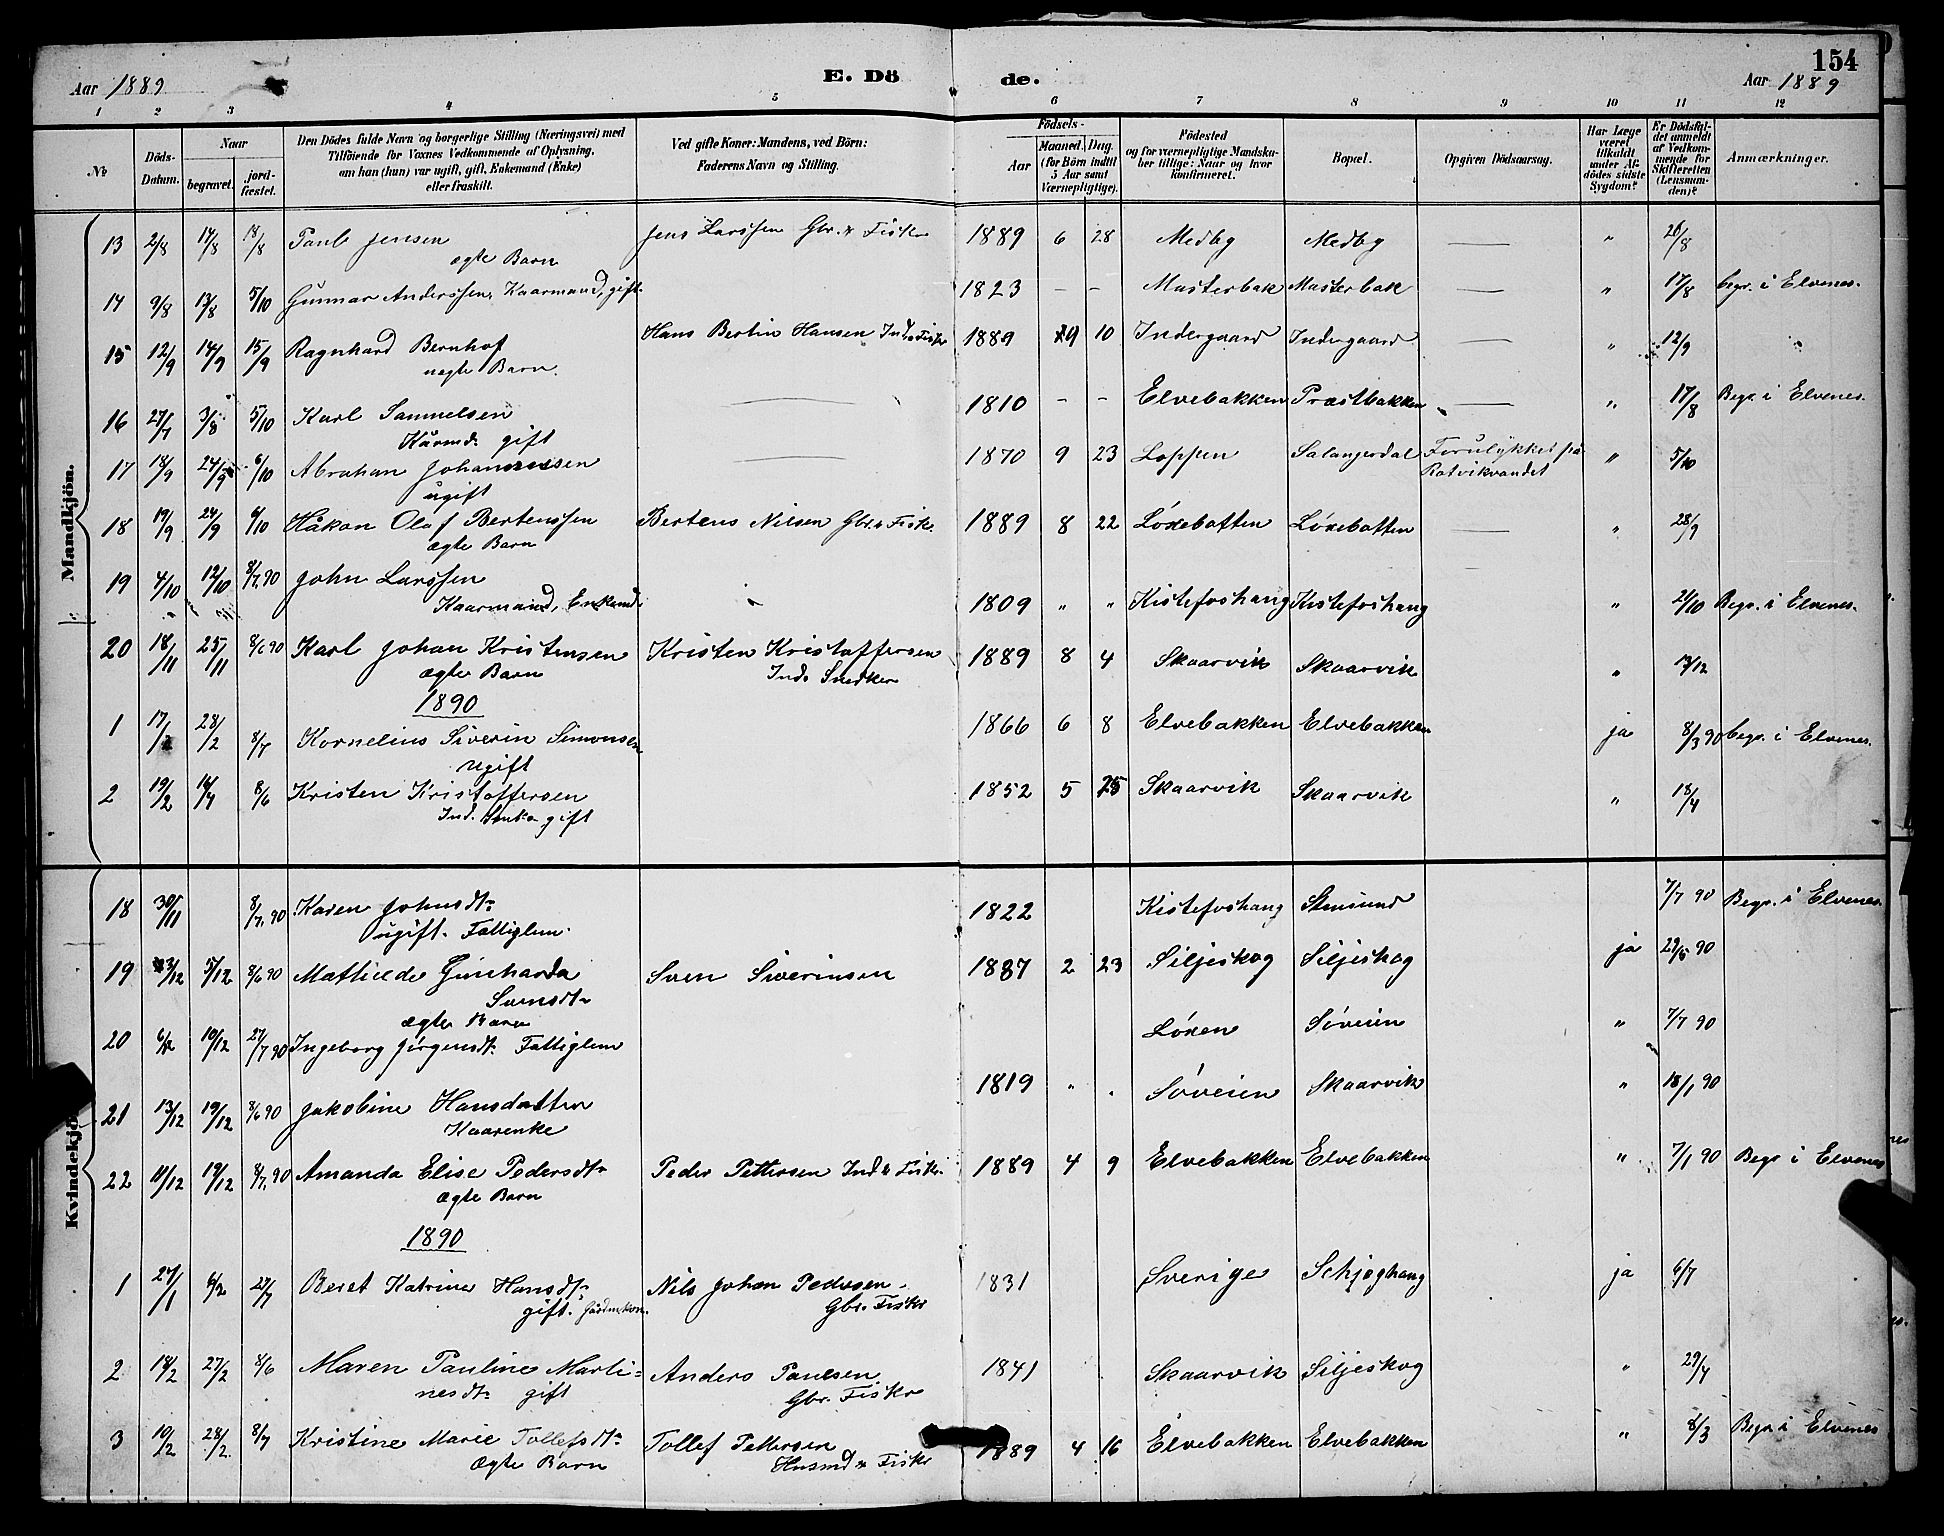 154
Aar 1889 E. Dö de. Aar 1889
1 2 3 4 5 6 7 8 9 10 11 12
№ Döds-Datum. Naar begravet. jordfæstet. Den Dödes fulde Navn og borgerlige Stilling (Næringsvei) med Tilföiende for Voxnes Vedkommende af Oplysning, om han (hun) var ugift, gift, Enkemand (Enke) eller fraskilt. Ved gifte Koner: Mandens, ved Börn: Faderens Navn og Stilling. Födsels- Aar Maaned. Dag. (for Börn indtil 5 Aar samt Værnepligtige). Födested og for værnepligtige Mandskaber tillige: Naar og hvor konfirmeret. Bopæl. Opgiven Dödsaarsag. Har Læge været tilkaldt under Afdödes sidste Sygdom? Er Dödsfaldet anmeldt af Vedkommende for Skifteretten (Lensmanden)? Anmærkninger.
Mandkjön.
13 2/8 14/8 18/8 Paul Jensen Jens Larssen Gbr. & Fisker 1889 6 28 Medby Medby — " 26/8
ægte Barn
14 9/8 13/8 5/10 Gunnar Anderssen, Kaarmand, gift 1823 - - Masterbak Masterbak — " 17/8 begr. i Elvenes.
15 12/9 14/9 15/9 Ragnhard Bernhof Hans Bertin Hansen Ind. & Fisker 1889 9 10 Indergaard Indergaard — " 12/9
uægte Barn.
16 27/7 3/8 5/10 Karl Samuelsen — 1810 - - Elvebakken Præstbakken — " 17/8 Begr. i Elvenes.
Kårmd. gift
17 18/9 24/9 6/10 Abraham Johannessen — 1870 9 23 Loppen Salangerdal Forulykket på " 5/10
ugift Rotvikvandet
18 19/9 24/9 6/10 Håkon Olaf Bertenssen Bertens Nilsen Gbr. & Fisker 1889 8 22 Löxebotten Löxebotten — " 28/9
ægte Barn
19 4/10 12/10 8/7 90 John Larssen
Kaarmand, Enkemd. 1809 " " Kistefoshaug Kistefoshaug " 24/10 Begr. i Elvenes.
20 18/11 25/11 8/6 90 Karl Johan Kristensen Kristen Kristoffersen 1889 8 4 Skaarvik Skaarvik " 13/12
ægte Barn Ind. Snedker
1890
1 17/2 28/2 8/7 Kornelius Siverin Simonsen 1866 6 8 Elvebakken Elvebakken ja 8/3 90 begr. i Elvenes.
ugift
2 19/2 14/4 8/6 Kristen Kristoffersen 1852 5 25 Skaarvik Skaarvik " 18/4
Ind. gift
Kvindekjön
18 30/11 8/7 90 Karen Johnsdt. 1822 Kistefoshaug Stensund 7/7 90 Begr. i Elvenes.
ugift. Fattiglem.
19 3/12 5/12 8/6 90 Mathilde Ginharda Sven Siverinsen 1887 2 23 Siljeskog Siljeskog ja 29/5 90
Svensdt.
ægte Barn
20 6/12 10/12 27/7 90 Ingeborg Jörgensdt. Fattiglem Löxen Söveien " 7/7 90
21 13/12 19/12 8/6 90 Jakobine Hansdatter 1819 " " Söveien Skaarvik " 18/1 90
Kaarenke
22 11/12 19/12 8/7 90 Amanda Elise Pedersdt. Peder Pettersen Ind. & Fisker 1889 4 9 Elvebakken Elvebakken " 7/1 90 Begr. i Elvenes
ægte Barn
1890
1 27/1 6/2 27/7 Beret Katrine Hansdt. Nils Johan Pedersen. 1831 Sverige Schjæghaug ja 6/7
gift. Gårdm.kone. Gbr. Fisker
2 18/2 27/2 8/6 Maren Pauline Marti- Anders Paulsen 1841 Skaarvik Siljeskog " 29/4
nesdt. gift Gbr. Fisker
3 10/2 28/2 8/7 Kristine Marie Tollefsdt. Tollef Pettersen 1889 4 16 Elvebakken Elvebakken " 8/3 Begr. i Elvenes
ægte Barn Husmd. & Fisker